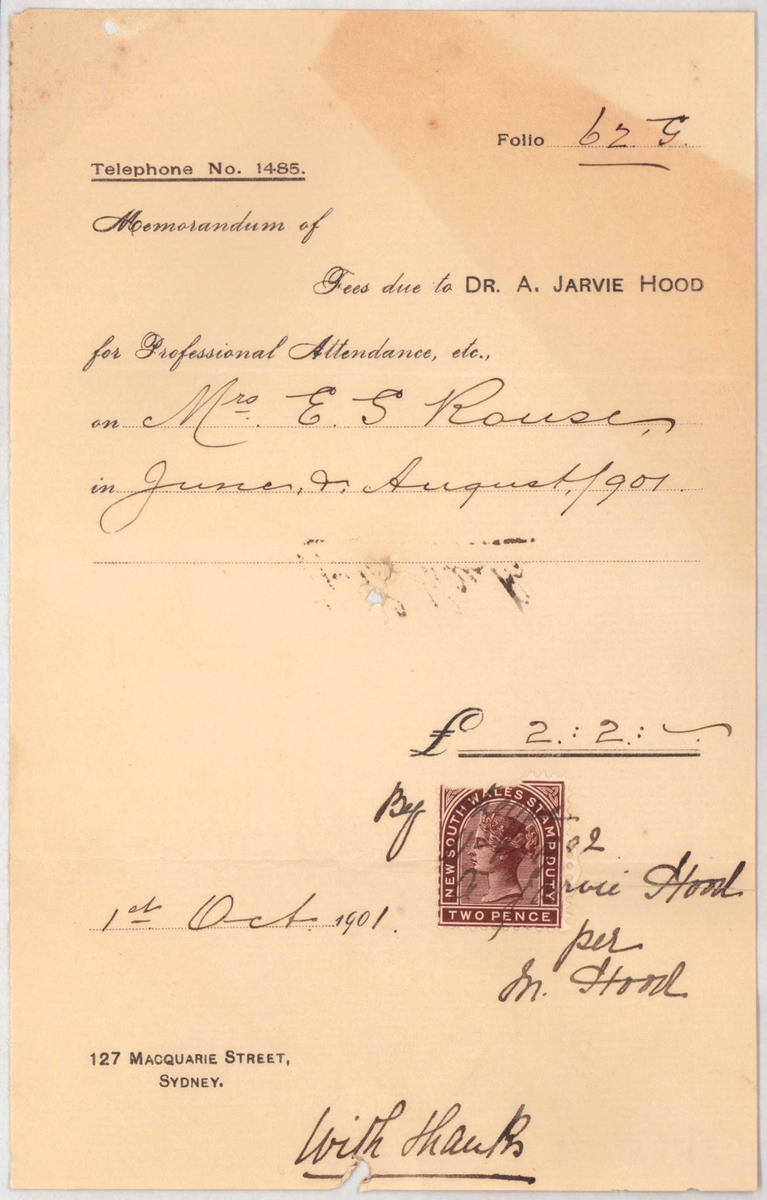 Folio 62 G.
Telephone No. 1485.
Memorandum of
Fees due to DR. A. JARVIE HOOD
for Professional Attendance, etc.,
on Mrs. E. G Rouse,
in June, & August, 1901.
£ 2 : 2 : -
By
NEW SOUTH WALES STAMP DUTY
TWO PENCE
Jarvie Hood
1st Oct. 1901.
per
M. Hood
127 MACQUARIE STREET,
SYDNEY.
With thanks